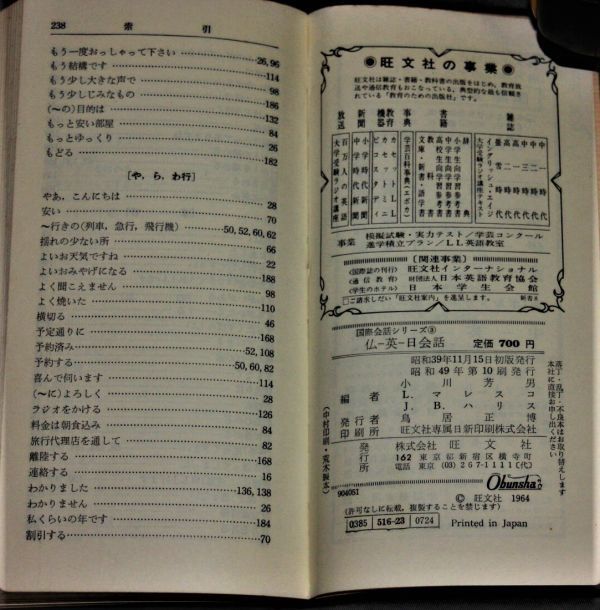 238 索引
もう一度おっしゃって下さい 26, 96
もう結構です 114
もう少し大きな声で 98
もう少しじみなもの 186
(〜の)目的は 132
もっと安い部屋 84
もっとゆっくり 26
もどる 182
[や, ら, わ行]
やあ, こんにちは 28
安い 70
〜行きの(列車, 急行, 飛行機) 50, 52, 60, 62
揺れの少ない所 66
よいお天気ですね 22
よいおみやげになる 188
よく聞こえません 98
よく焼いた 110
横切る 46
予定通りに 168
予約済み 52, 108
予約する 50, 60, 82
喜んで伺います 114
(〜に)よろしく 28
ラジオをかける 126
料金は朝食込み 84
旅行代理店を通して 82
離陸する 168
連絡する 16
わかりました 136, 138
わかりません 26
私くらいの年です 184
割引する 70
旺文社の事業
旺文社は雑誌・書籍・教科書の出版をはじめ, 教育放
送や通信教育もおこなっている, 典型的な最も信頼さ
れている「教育のための出版社」です.
雑誌
中一時代
中二時代
中三時代
高一時代
高二時代
螢雪時代
イングリッシュ・エイジ
大学受験ラジオ講座テキスト
書籍
辞典
小学生向学習参考書
中学生向学習参考書
高校生向学習参考書
教科書
文庫・新書・語学書
事典
学芸百科事典(エポカ)
教育機器
カセットLL
カセットミニ
新聞
小学時代新聞
中学時代新聞
放送
百万人の英語
大学受験ラジオ講座
事業 模擬試験・実力テスト/学芸コンクール
進学積立プラン/LL英語教室
[関連事業]
(国際誌の刊行) 旺文社インターナショナル
(通信教育) 財団法人日本英語教育協会
(学生のホテル) 日本学生会館
□ご請求しだい「旺文社案内」を進呈します.
国際会話シリーズ③
仏-英-日会話 定価 700円
昭和39年11月15日初版発行
昭和49年 第10刷発行
編者 小川芳男
L. マレスコ
J. B. ハリス
発行者 鳥居正博
印刷所 旺文社専属日新印刷株式会社
発行所 株式会社 旺文社
162 東京都新宿区横寺町
電話 東京 (03) 267-1111(代)
落丁・乱丁・不良本はお取り替えします
本社に直接お申し出ください
(中村印刷・荒木製本)
904051
Obunsha
© 旺文社 1964
(許可なしに転載, 複製することを禁じます)
0385 516-23 0724 Printed in Japan